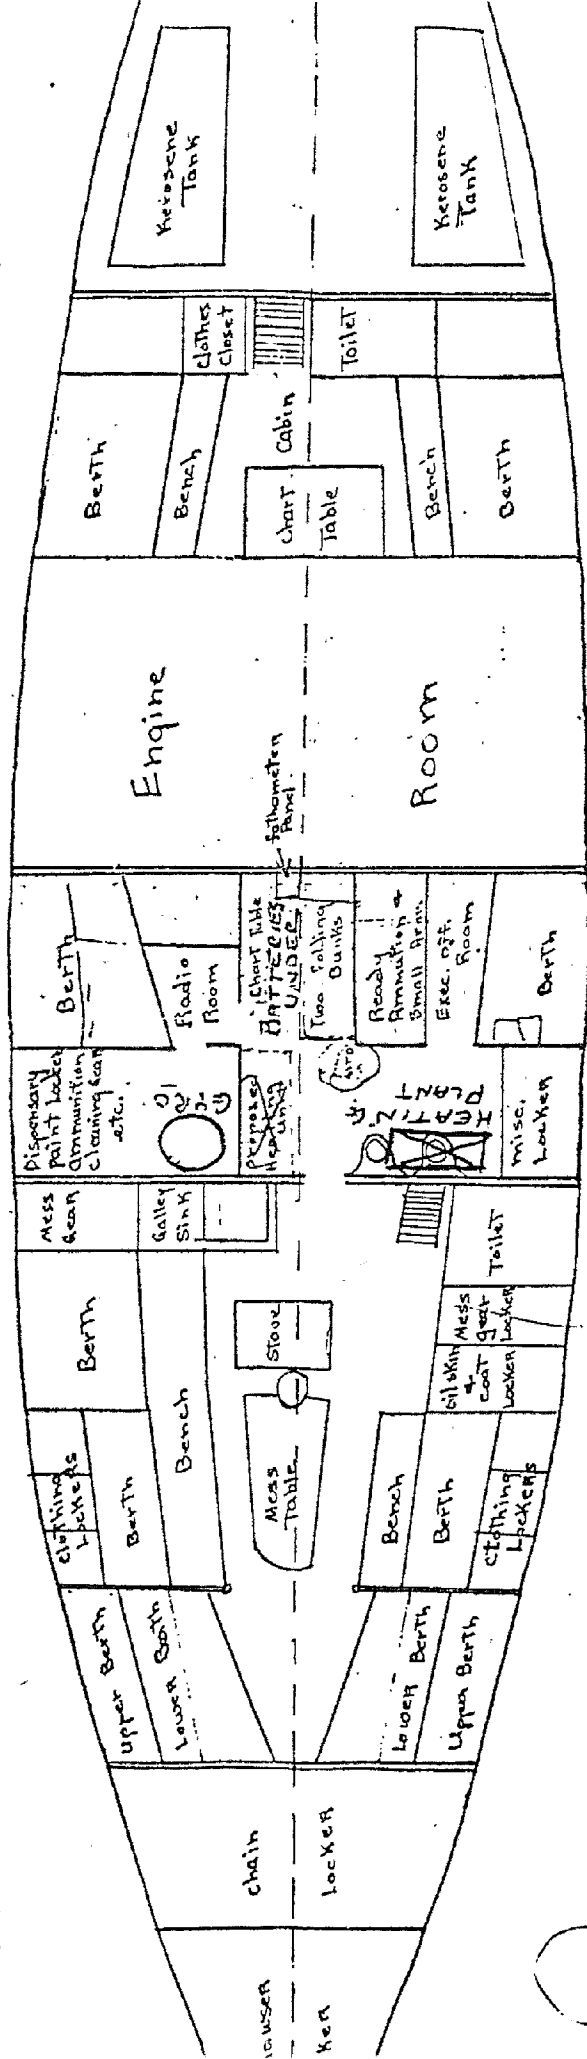 Kerosene
Tank
Kerosene
Tank
Clothes
Closet
Toilet
Berth
Bench
Cabin
Chart
Table
Bench
Berth
Engine
Room
fathometer
Panel
Berth
Radio
Room
Chart Table
BATTERIES
UNDER
Two Folding
Bunks
Ready
Ammution &
Small Arms
Exec. off.
Room
Berth
Dispensary
paint Locker
ammunition
cleaning Gear
etc.
Proposed
Heating
Unit
HEATING
PLANT
misc.
Locker
Mess
Gear
Galley
Sink
Toilet
Berth
Stove
Mess
gear
Locker
oilskin
&
coat
Locker
Clothing
Lockers
Berth
Bench
Mess
Table
Bench
Berth
Clothing
Lockers
Upper Berth
Lower Berth
Lower Berth
Upper Berth
chain
Locker